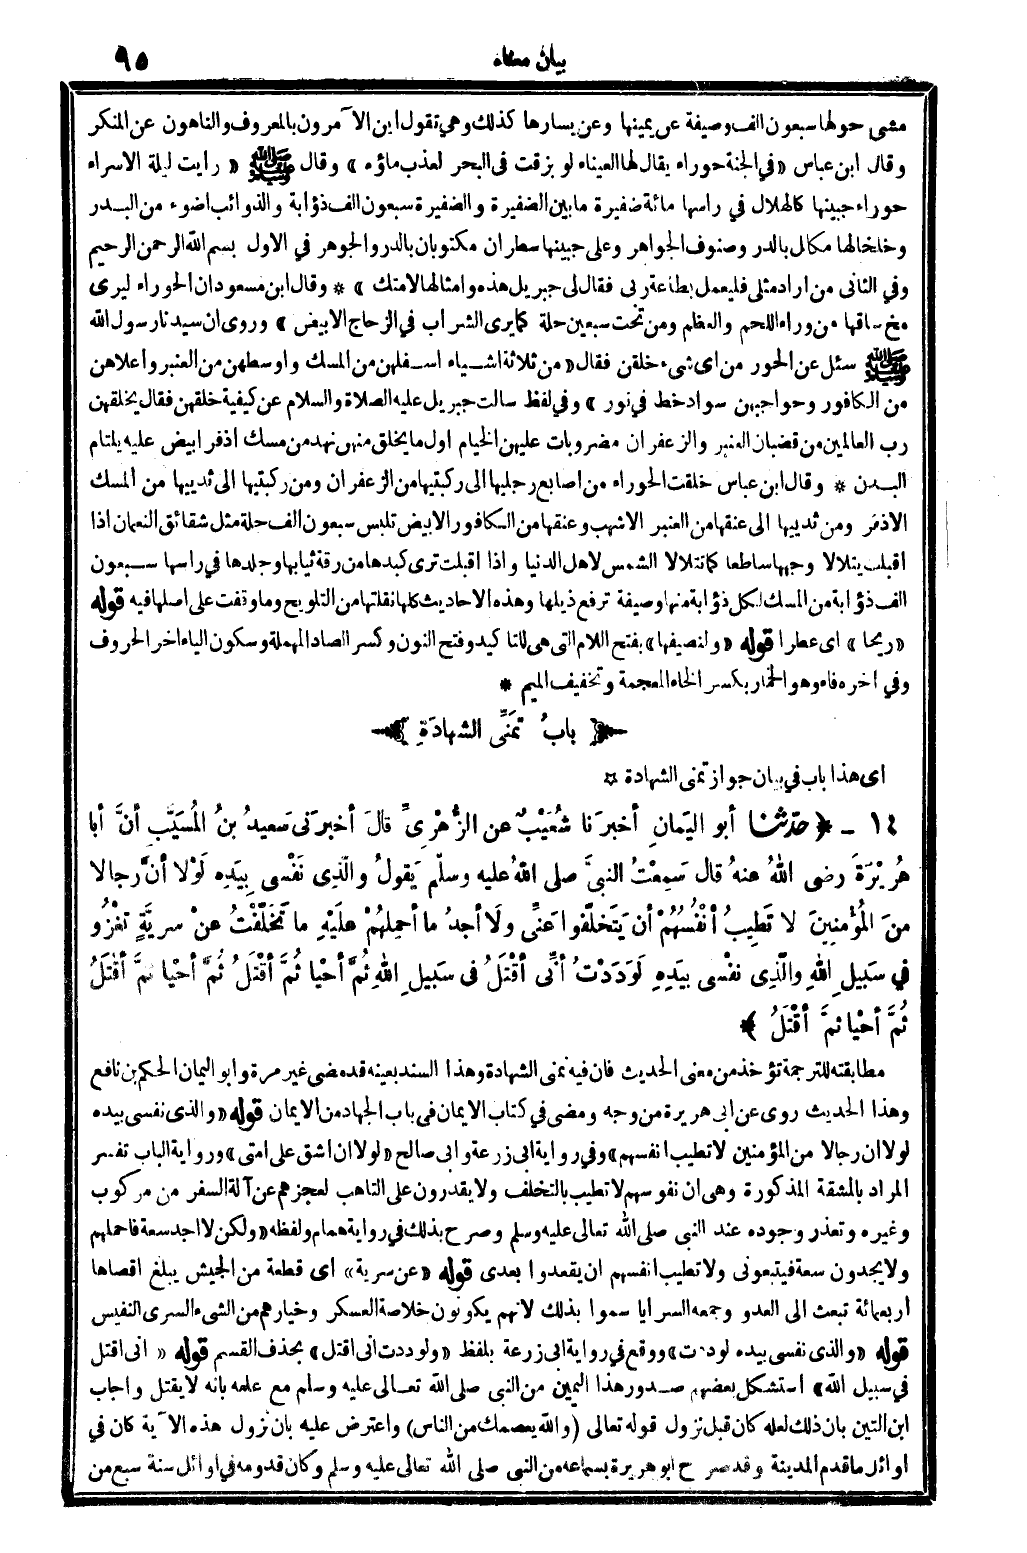 بيان معناه
٩٥
مشى حولها سبعون الف وصيفة عن يمينها وعن يسارها كذلك وهى تقول اين الآمرون بالمعروف والناهون عن المنكر
وقال ابن عباس «في الجنة حوراء يقال لها العيناء لو بزقت فى البحر لعذب ماؤه» وقال ﷺ «رايت ليلة الاسراء
حوراء جبينها كالهلال في راسها مائة ضفيرة مابين الضفيرة والضفيرة سبعون الف ذؤابة والذوائب اضوء من البدر
وخلخالها مكال بالدر وصنوف الجواهر وعلى جبينها سطران مكتوبان بالدر والجوهر في الاول بسم الله الرحمن الرحيم
وفي الثانى من اراد مثلى فليعمل بطاعة ربى فقال لى جبريل هذه وامثالها لامتك» * وقال ابن مسعود ان الحوراء ليرى
مخ ساقها من وراء اللحم والعظم ومن تحت سبعين حلة كما يرى الشراب في الزجاج الابيض» وروى ان سيدنا رسول الله
ﷺ سئل عن الحور من اى شىء خلقن فقال «من ثلاثة اشياء اسفلهن من المسك واوسطهن من العنبر واعلاهن
من الكافور وحواجبهن سواد خط في نور» وفي لفظ سالت جبريل عليه الصلاة والسلام عن كيفية خلقهن فقال يخلقهن
رب العالمين من قضبان العنبر والزعفران مضروبات عليهن الخيام اول ما يخلق منهن نهد من مسك اذفر ابيض عليه يلتام
البدن * وقال ابن عباس خلقت الحوراء من اصابع رجليها الى ركبتيها من الزعفران ومن ركبتيها الى ثدييها من المسك
الاذفر ومن ثدييها الى عنقها من العنبر الاشهب وعنقها من الكافور الابيض تلبس سبعون الف حلة مثل شقائق النعمان اذا
اقبلت يتلالا وجهها ساطعا كما تتلالا الشمس لاهل الدنيا واذا اقبلت ترى كبدها من رقة ثيابها وجلدها في راسها سبعون
الف ذؤابة من المسك لكل ذؤابة منها وصيفة ترفع ذيلها وهذه الاحاديث كلها نقلتها من التلويح وما وقفت على اصلها فيه قوله
«ريحا» اى عطرا قوله «ولنصيفها» بفتح اللام التى هى للتا كيد وفتح النون وكسر الصاد المهملة وسكون الياء اخر الحروف
وفي اخره فاء وهو الخمار بكسر الخاء المعجمة وتخفيف الميم *
﴿ بابُ تَمَنِّى الشهادَةِ ﴾
اى هذا باب في بيان جواز تمنى الشهادة *
١٤ ـ ﴿ حدّثنا أبو اليَمانِ أخبرَنا شُعَيْبٌ عنِ الزُّهْرِىِّ قالَ أخبرَنى سَعيدُ بنُ المُسَيَّبِ أنَّ أبا
هُرَيْرَةَ رضى اللهُ عنهُ قال سَمِعْتُ النبىَّ صلى اللهُ عليه وسلّم يَقولُ والَّذِى نَفْسى بِيَدِه لَوْلا أنَّ رجالا
منَ المُؤْمنِينَ لا تَطِيبُ أنْفُسُهُمْ أن يَتَخلّفوا عَنِّى ولَا أجدُ ما أحمِلهُمْ علَيْهِ ما تَخلّفْتُ عنْ سريَّةٍ تَغْزُو
في سَبيلِ اللهِ والَّذِى نفْسى بيَدِهِ لَوَدَدْتُ أنِّى أقْتَلُ فى سَبيلِ اللهِ ثُمَّ أحْيا ثُمَّ أقْتَلُ ثُمَّ أحْيا ثمَّ أقْتَلُ
ثُمَّ أحْيا ثمَّ أقْتَلُ ﴾
مطابقته للترجمة تؤخذ من معنى الحديث فان فيه تمنى الشهادة وهذا السند بعينه قد مضى غير مرة وابو اليمان الحكم بن نافع
وهذا الحديث روى عن ابى هريرة من وجه ومضى في كتاب الايمان في باب الجهاد من الايمان قوله «والذى نفسى بيده
لولا ان رجالا من المؤمنين لا تطيب انفسهم» وفي رواية ابى زرعة وابى صالح «لولا ان اشق على امتى» ورواية الباب تفسر
المراد بالمشقة المذكورة وهى ان نفوسهم لا تطيب بالتخلف ولا يقدرون على التاهب لعجزهم عن آلة السفر من مركوب
وغيره وتعذر وجوده عند النبى صلى الله تعالى عليه وسلم وصرح بذلك في رواية همام ولفظه «ولكن لا اجد سعة فاحملهم
ولا يجدون سعة فيتبعونى ولا تطيب انفسهم ان يقعدوا بعدى قوله «عن سرية» اى قطعة من الجيش يبلغ اقصاها
أربعمائة تبعث الى العدو وجمعه السرايا سموا بذلك لانهم يكونون خلاصة العسكر وخيارهم من الشىء السرى النفيس
قوله «والذى نفسى بيده لوددت» ووقع في رواية ابى زرعة بلفظ «ولوددت انى اقتل» بحذف القسم قوله «انى اقتل
في سبيل الله» استشكل بعضهم صدور هذا اليمين من النبى صلى الله تعالى عليه وسلم مع علمه بانه لا يقتل واجاب
ابن التين بان ذلك لعله كان قبل نزول قوله تعالى (والله يعصمك من الناس) واعترض عليه بان نزول هذه الآية كان في
اوائل ما قدم المدينة وقد صرح ابو هريرة بسماعه من النبى صلى الله تعالى عليه وسلم وكان قدومه في اوائل سنة سبع من